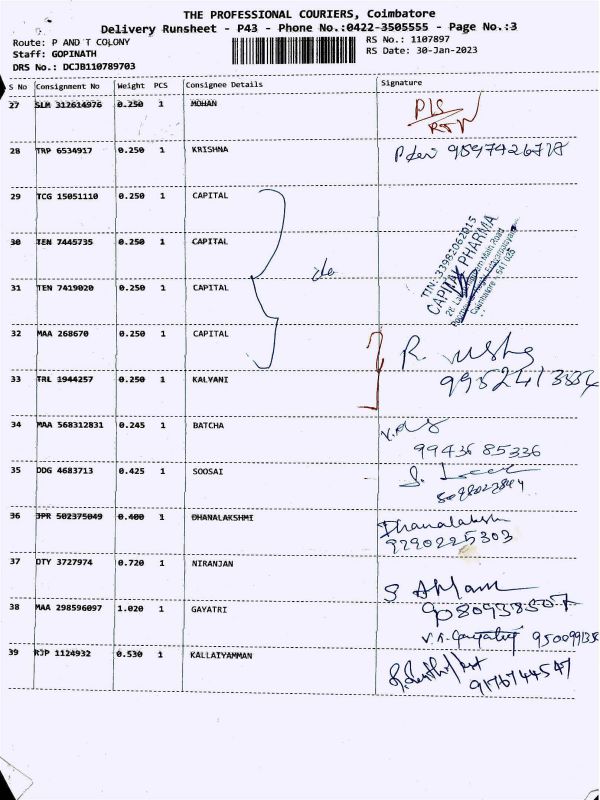 THE PROFESSIONAL COURIERS, Coimbatore
Delivery Runsheet - P43 - Phone No.:0422-3505555 - Page No.:3
Route: P AND T COLONY
RS No.: 1107897
Staff: GOPINATH
RS Date: 30-Jan-2023
DRS No.: DCJB110789703
S No Consignment No Weight PCS Consignee Details Signature
27 SLM 312614976 0.250 1 MOHAN
28 TRP 6534917 0.250 1 KRISHNA
29 TCG 15051110 0.250 1 CAPITAL
30 TEN 7445735 0.250 1 CAPITAL
TIN: 33982062015
CAPITAL PHARMA
31 TEN 7419020 0.250 1 CAPITAL
32 MAA 268670 0.250 1 CAPITAL
33 TRL 1944257 0.250 1 KALYANI
34 MAA 568312831 0.245 1 BATCHA
99436 85336
35 DDG 4683713 0.425 1 SOOSAI
36 JPR 502375049 0.400 1 DHANALAKSHMI
Dhanalakshmi
9290225303
37 DTY 3727974 0.720 1 NIRANJAN
38 MAA 298596097 1.020 1 GAYATRI
39 RJP 1124932 0.530 1 KALLAIYAMMAN
9176744547